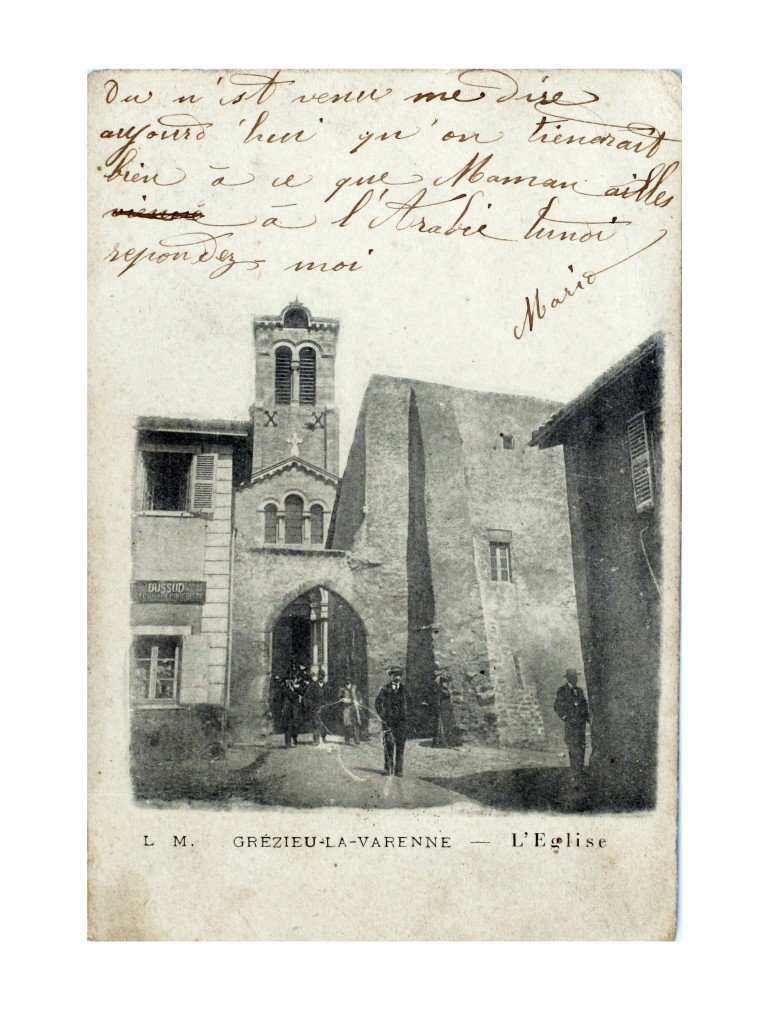 On n'est venu me dire
aujourd'hui qu'on tiendrait
bien à ce que Maman ailles
à l'Arabie lundi
repondez moi
Maria
DUSSUD
L M. GRÉZIEU-LA-VARENNE — L'Eglise